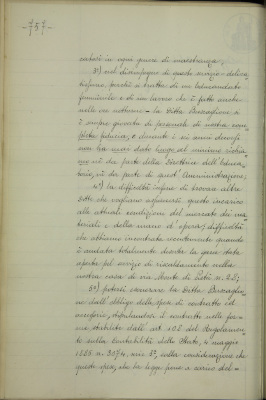 -757-
in ogni genere di maestranza;
3°) nel disimpegno di questo servizio
perché si tratta di un
e di un lavoro che è fatto anche
nelle ore notturne - la Ditta
è sempre giovata di personale di intera con-
fidata fiducia, e durante i sei anni decorsi
non ha mai dato luogo al minimo richia-
mo né da parte della Direttrice dell'
né da parte di quest'Amministrazione;
4°) la difficoltà infine di trovare altre
ditte che vogliano assumersi questo incarico
alle attuali condizioni del mercato dei ma-
teriali e della mano d'opera; difficoltà
che abbiamo incontrata recentemente quando
è andata totalmente deserta la gara
aperta pel servizio di riscaldamento nella
nostra casa di via Monte di Pietà
5°) potersi esonerare la Ditta
dall'obbligo delle spese di contratto ed
accessorie, stipulandosi il contratto nella for-
ma stabilita dall'art. del Regolamen-
to sulla Contabilità dello Stato, 4 maggio
1885 n. 3074, sulla considerazione che
queste spese, che la legge pone a carico del-